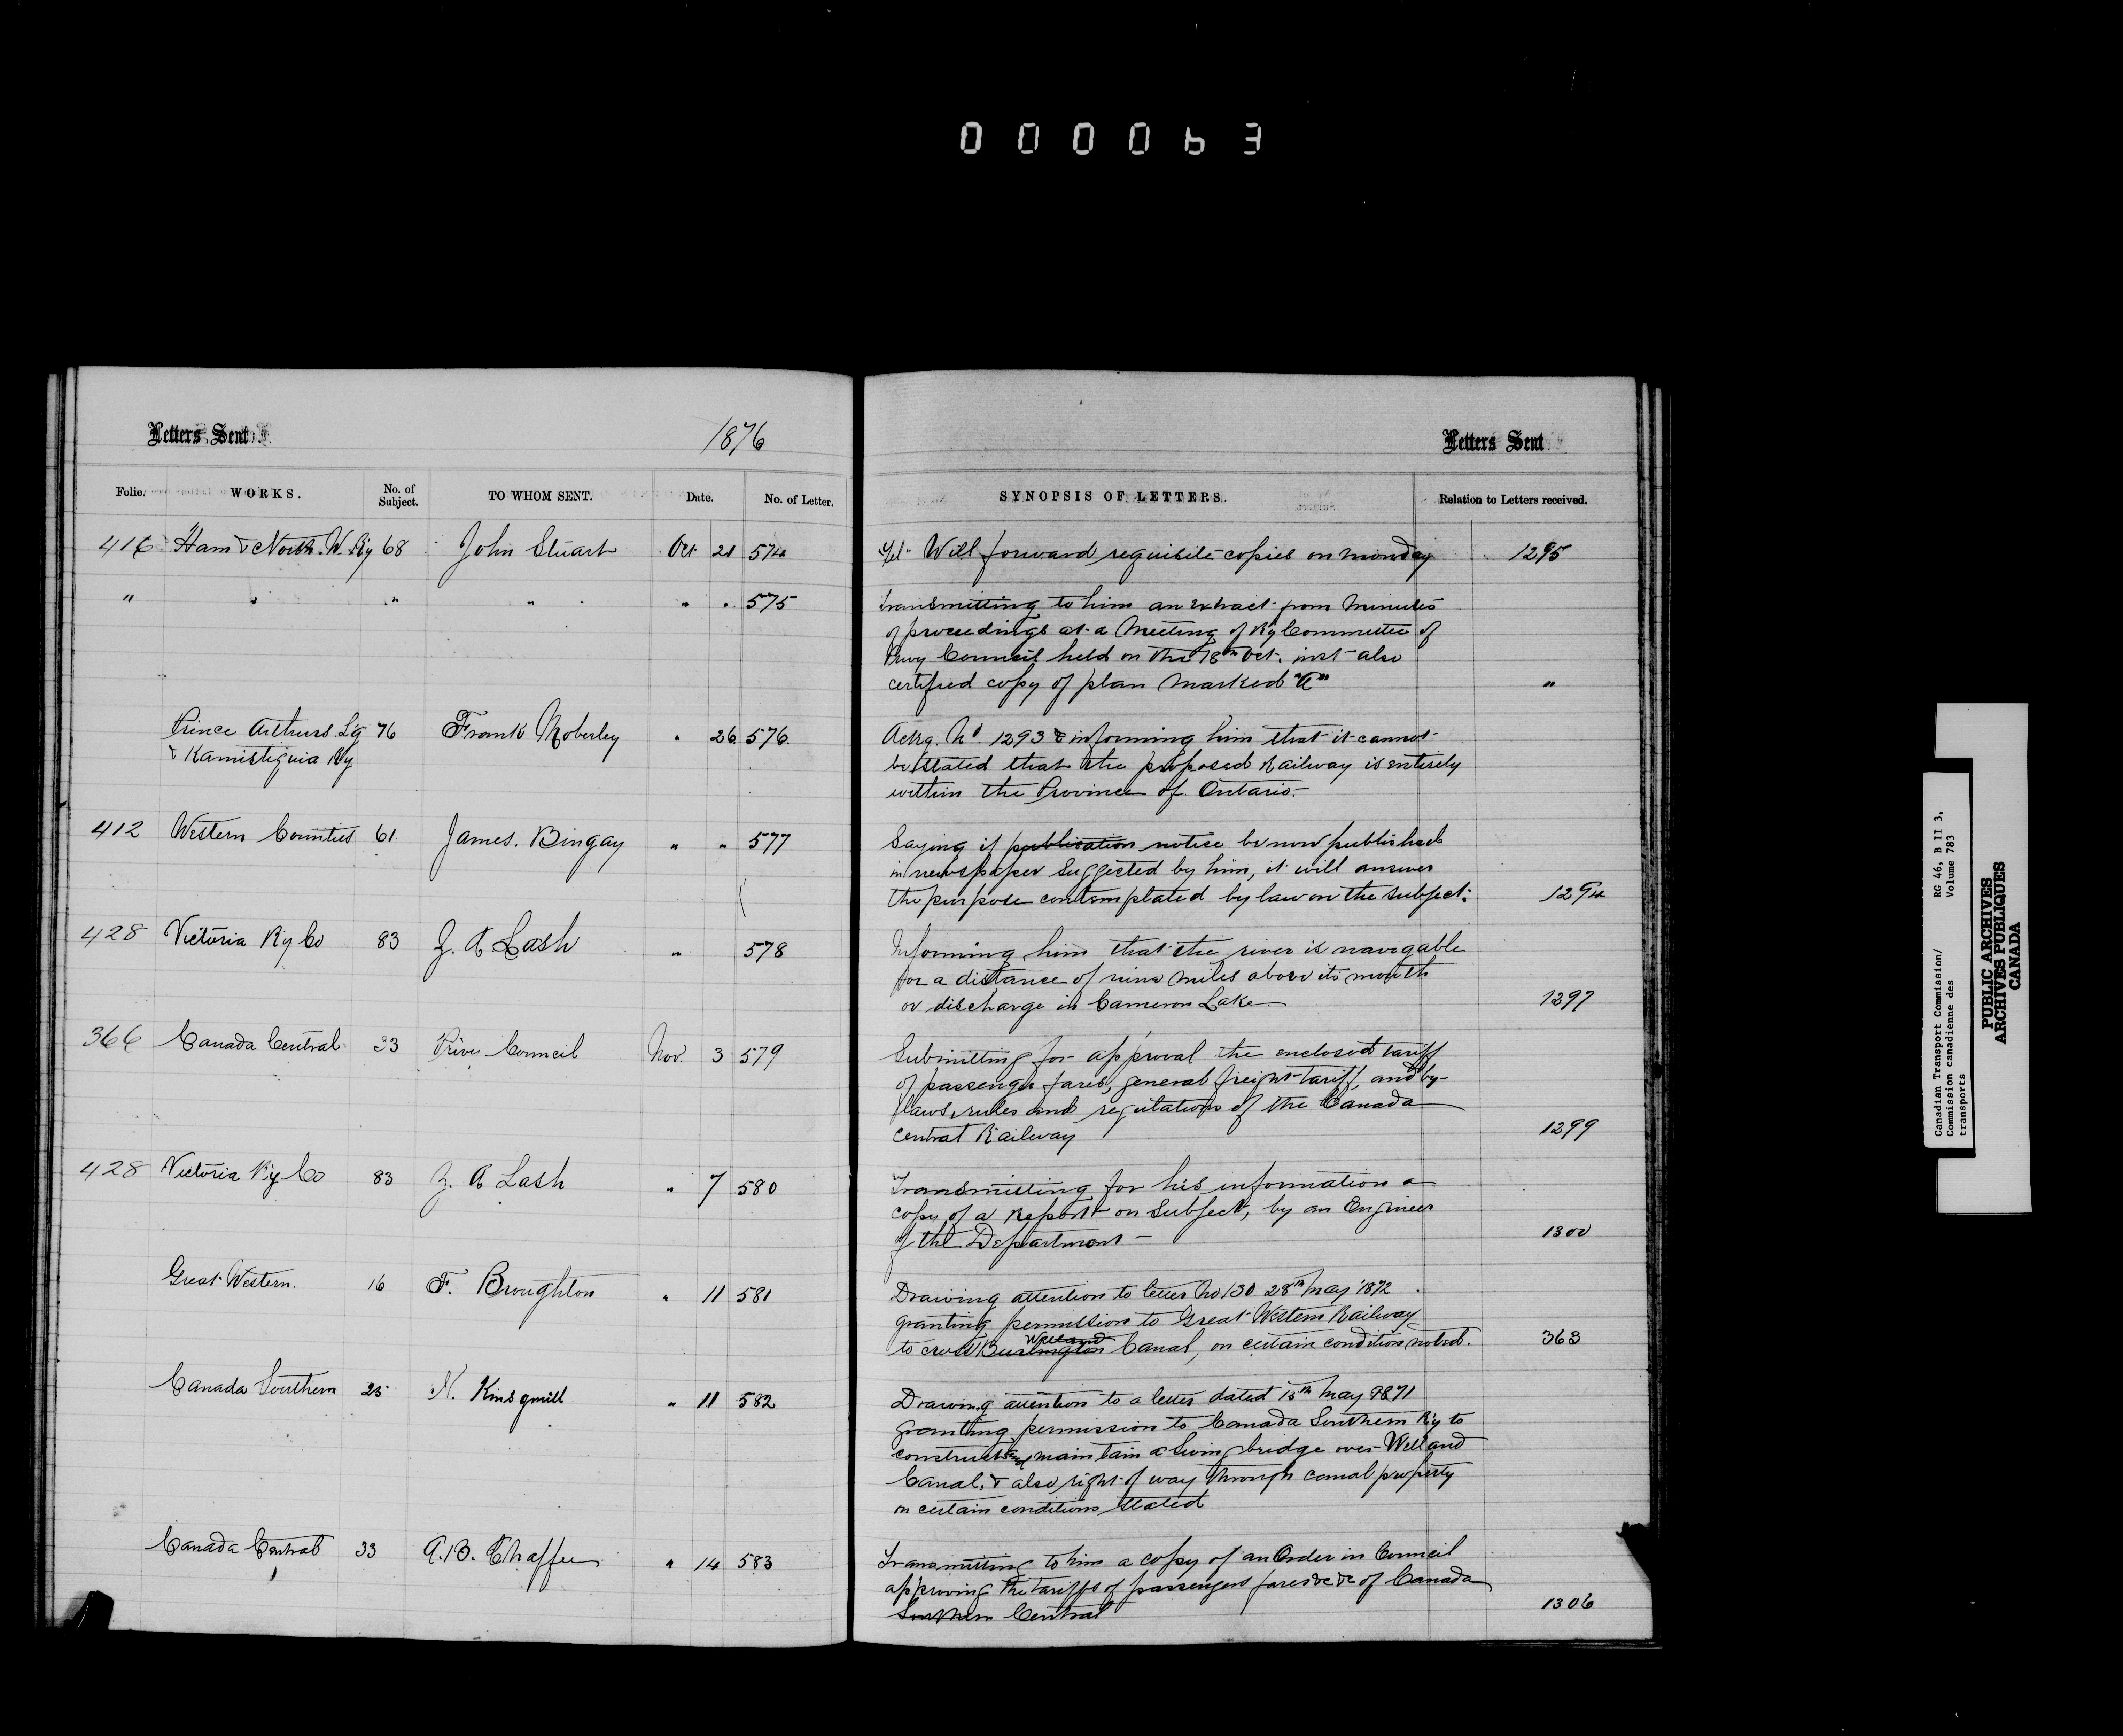 000063
Letters Sent
1876
Letters Sent
Folio. WORKS. No. of Subject. TO WHOM SENT. Date. No. of Letter. SYNOPSIS OF LETTERS. Relation to Letters received.
416 Ham & North. W. Ry 68 John Stuart Oct 21 574 Tel- Will forward requisite copies on Monday 1295
" " " " " " 575 Transmitting to him an extract from Minutes
of proceedings at a Meeting of Ry Committee of
Privy Council held on the 18th Oct. inst also
certified copy of plan marked "A" "
Prince Arthurs Lg 76 Frank Moberley " 26 576 Ackg. No 1293 & informing him that it cannot
& Kamistiquia Ry be stated that the proposed Railway is entirely
within the Province of Ontario.
412 Western Counties 61 James. Bingay " " 577 Saying if publication notice be now published
in newspaper Suggested by him, it will answer
the purpose contemplated by law on the subject. 1294
428 Victoria Ry Co 83 Z. A Lash " 578 Informing him that the river is navigable
for a distance of nine miles above its mouth
or discharge in Cameron Lake 1297
366 Canada Central 33 Privy Council Nov. 3 579 Submitting for approval the enclosed tariff
of passenger fares, general freight tariff, and by-
laws, rules and regulations of the Canada
Central Railway 1299
428 Victoria Ry Co 83 Z. A Lash " 7 580 Transmitting for his information a
copy of a Report on Subject, by an Engineer
of the Department - 1300
Great Western. 16 F. Broughton " 11 581 Drawing attention to letter No 130 28th May 1872
granting permission to Great Western Railway
Welland
to cross Burlington Canal, on certain condition noted. 363
Canada Southern 25 N. Kinsgmill " 11 582 Drawing attention to a letter dated 15th May 1871
granting permission to Canada Southern Ry to
construct and maintain a Swing bridge over Welland
Canal, & also right of way through canal property
on certain conditions stated
Canada Central 33 A.B. Chaffee " 14 583 Transmitting to him a copy of an Order in Council
approving the tariffs of passengers fares &c &c of Canada
Southern Central 1306
Canadian Transport Commission/
Commission canadienne des
transports
RG 46, B II 3,
Volume 783
PUBLIC ARCHIVES
ARCHIVES PUBLIQUES
CANADA